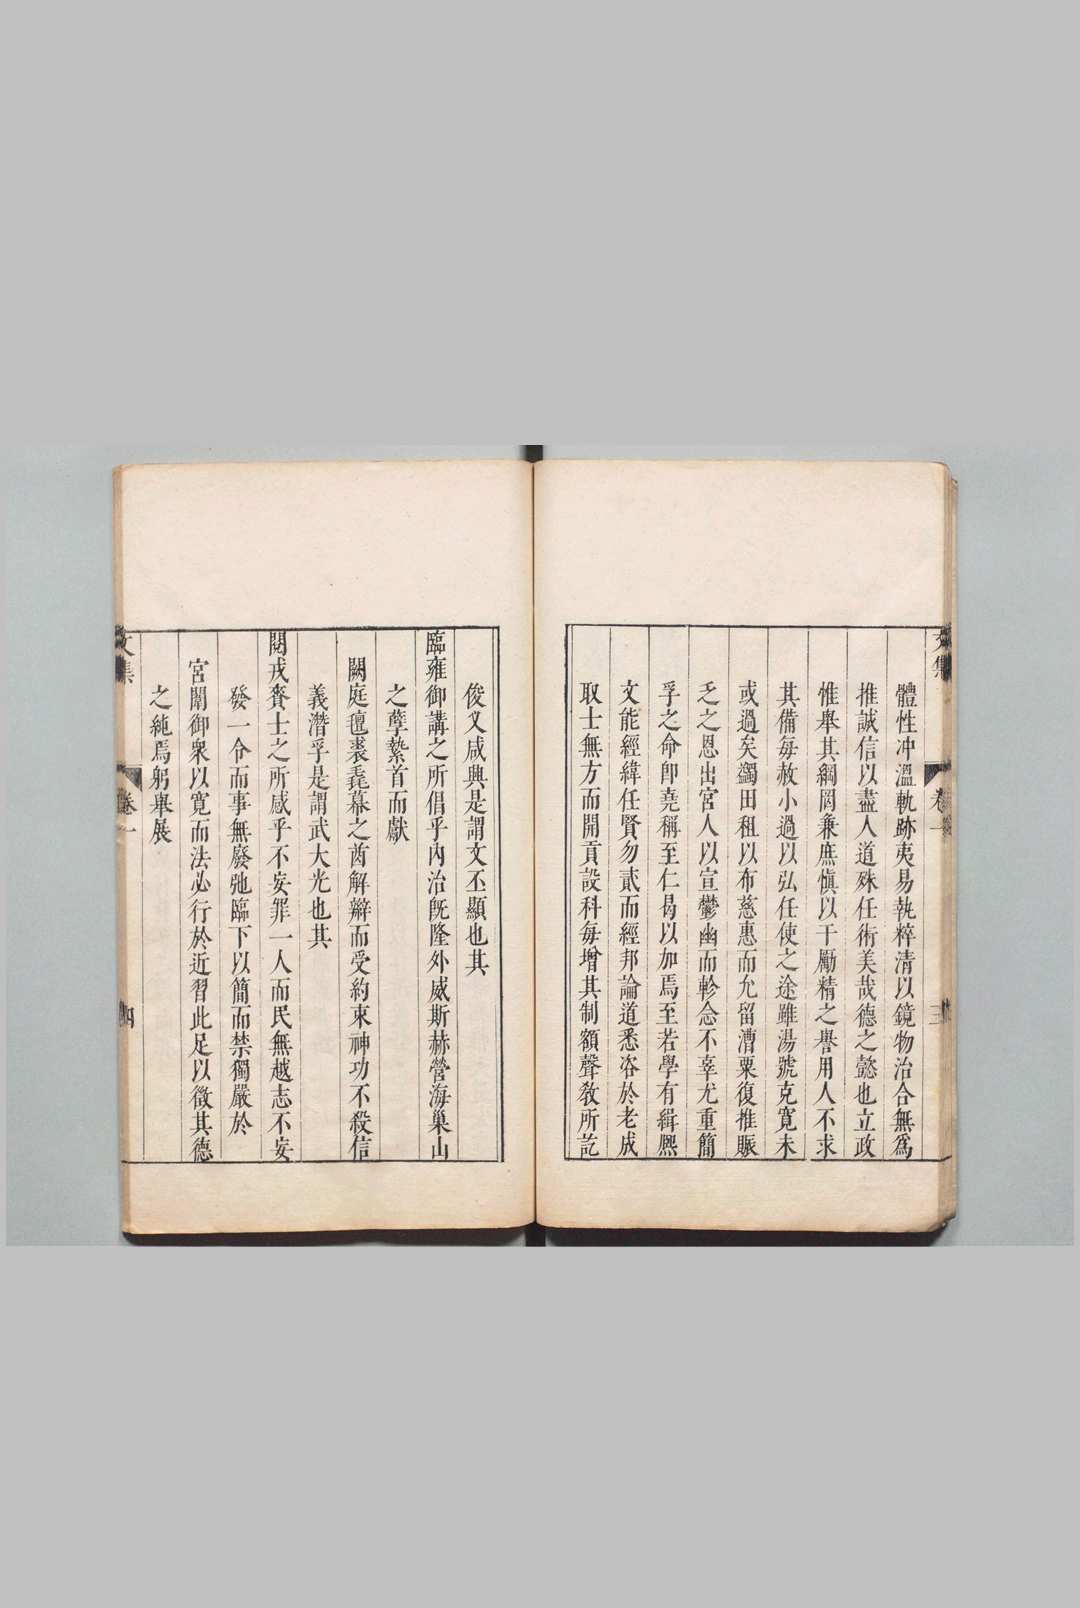 體性冲溫軌跡夷易執粹清以鏡物治合無爲
推誠信以盡人道殊任術美哉德之懿也立政
惟舉其綱罔兼庶愼以干勵精之譽用人不求
其備每赦小過以弘任使之途雖湯號克寬未
或過矣蠲田租以布慈惠而允留漕粟復推賑
乏之恩出宮人以宣鬱幽而軫念不辜尤重簡
孚之命卽堯稱至仁曷以加焉至若學有緝熈
文能經緯任賢勿貳而經邦論道悉咨於老成
取士無方而開貢設科每增其制額聲敎所訖
文集
卷一
三
俊乂咸興是謂文丕顯也其
臨雍御講之所倡乎內治旣隆外威斯赫營海巢山
之孽縶首而獻
闕庭氊裘毳幕之酋解辮而受約束神功不殺信
義潛孚是謂武大光也其
閱戎賚士之所感乎不妄罪一人而民無越志不妄
發一令而事無廢弛臨下以簡而禁獨嚴於
宮闈御衆以寬而法必行於近習此足以徵其德
之純焉躬舉展
文集
卷一
四